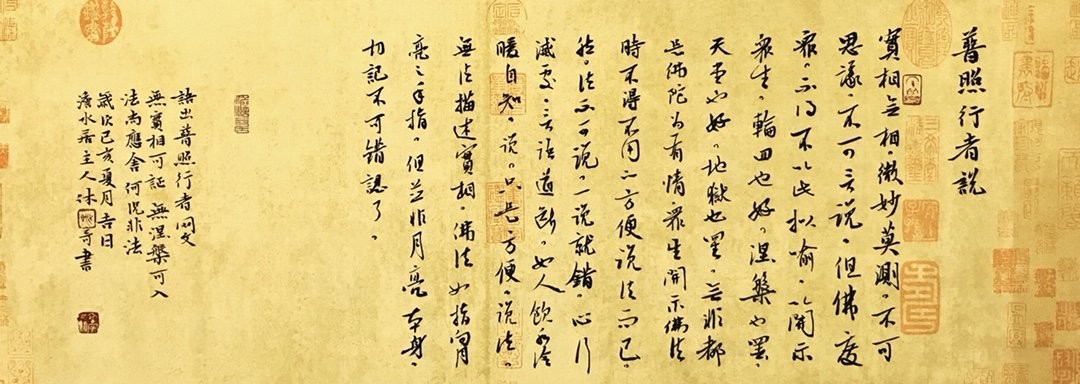 普照行者說
實相無相。微妙莫測。不可
思議。不可言說。但佛度
眾。不得不以此拟喻。以開示
眾生。輪回也好。涅槃也罢。
天堂也好。地獄也罢。无非都
是佛陀为有情眾生開示佛法
時不得不用方便說法而已。
然。法不可說。一說就錯。心行
滅處。言語道斷。如人飲水冷
暖自知。說。只是方便。說法。
無法描述實相。佛法如指向月
亮之手指。但並非月亮本身。
切記不可錯認了。
語出普照行者
無實相可証 無涅槃可入
法尚應舍何況非法
歲次己亥夏月吉日
水居主人沐 書